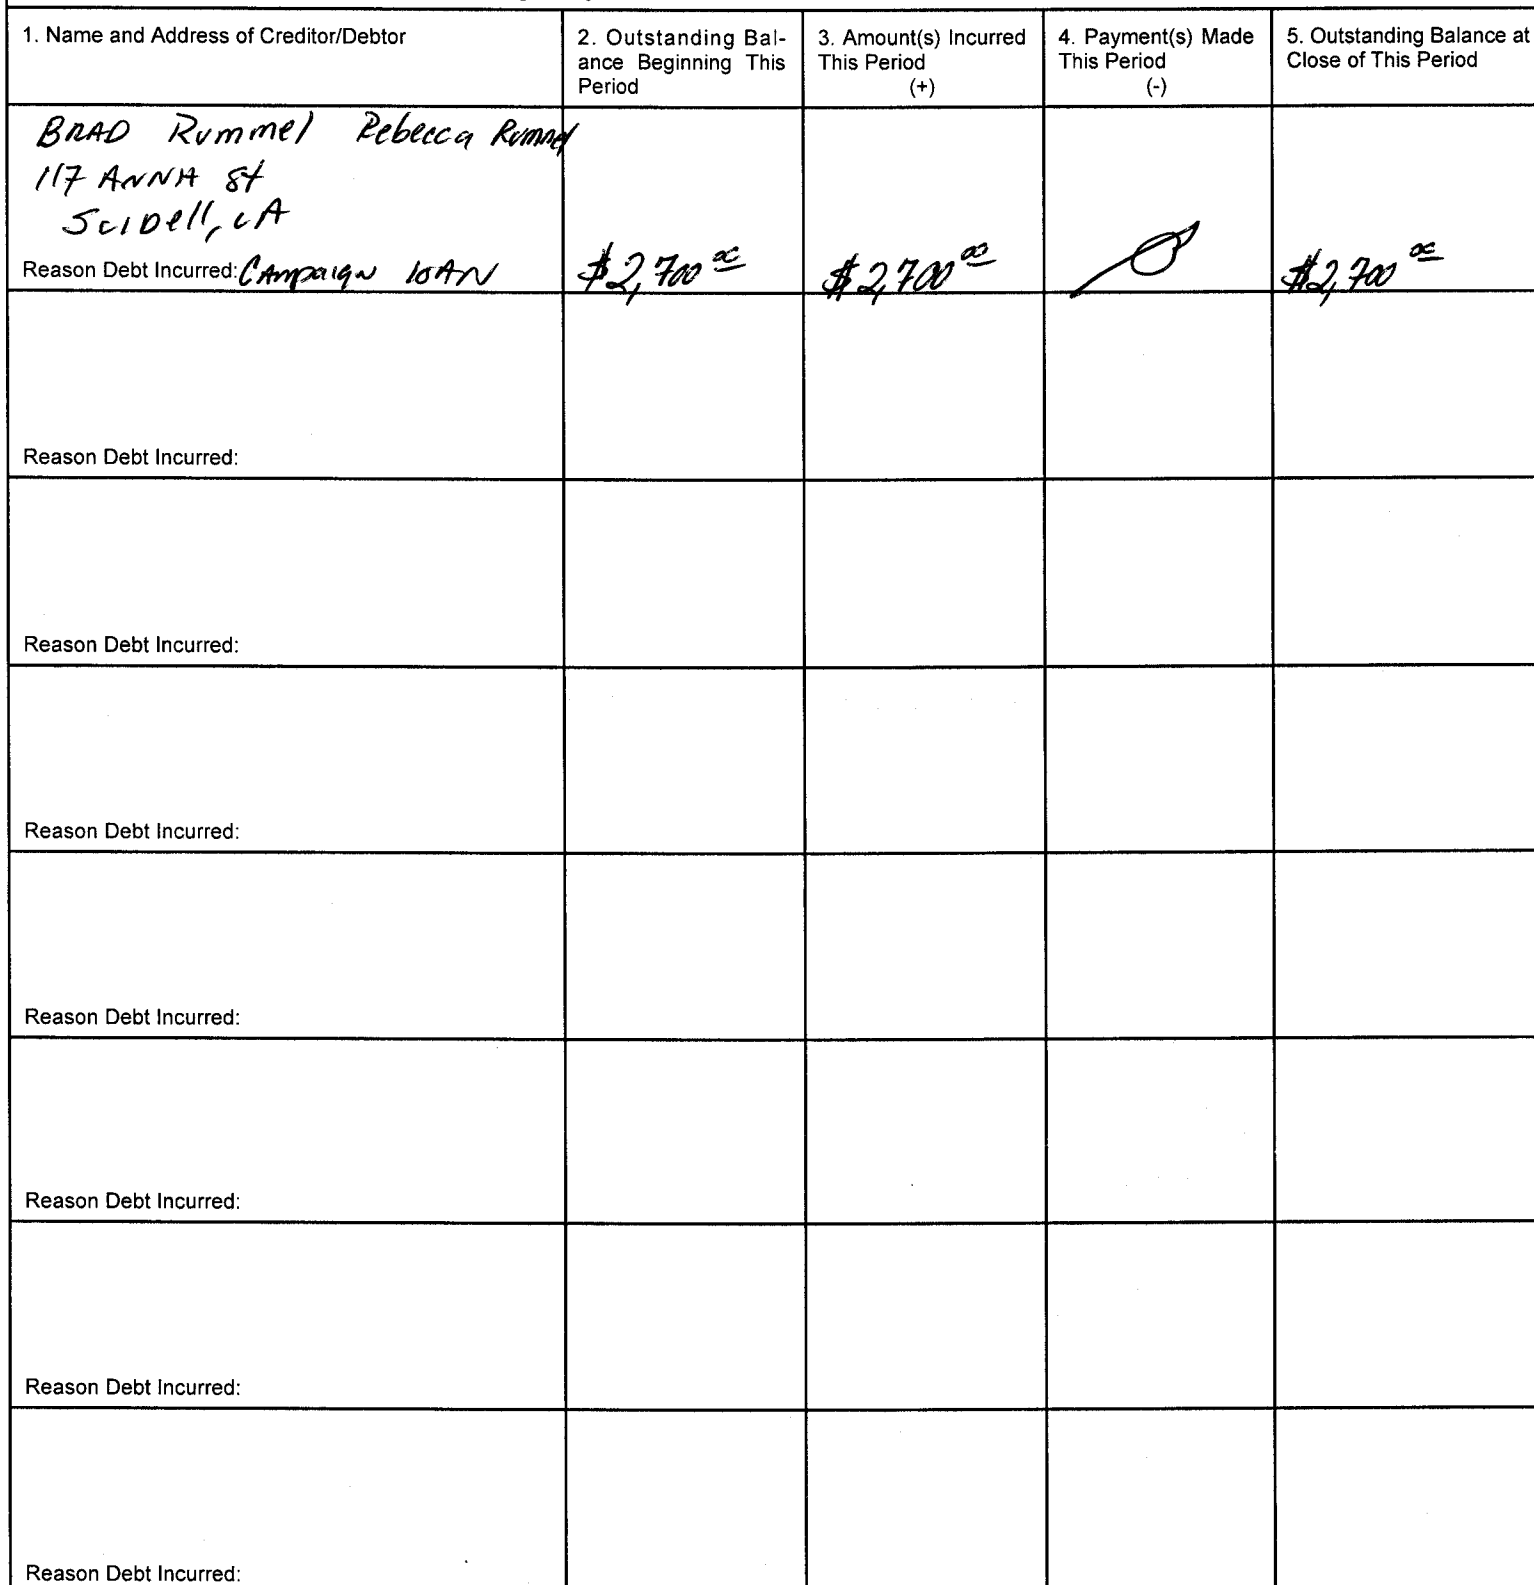 1. Name and Address of Creditor/Debtor
2. Outstanding Bal-
ance Beginning This
Period
3. Amount(s) Incurred
This Period
(+)
4. Payment(s) Made
This Period
(-)
5. Outstanding Balance at
Close of This Period
BRAD Rummel Rebecca Rummel
117 ANNA St
SLIDell, LA
Reason Debt Incurred: CAmpaign loAN
$2,700 00
$2,700 00
Ø
$2,700 00
Reason Debt Incurred:
Reason Debt Incurred:
Reason Debt Incurred:
Reason Debt Incurred:
Reason Debt Incurred:
Reason Debt Incurred:
Reason Debt Incurred: